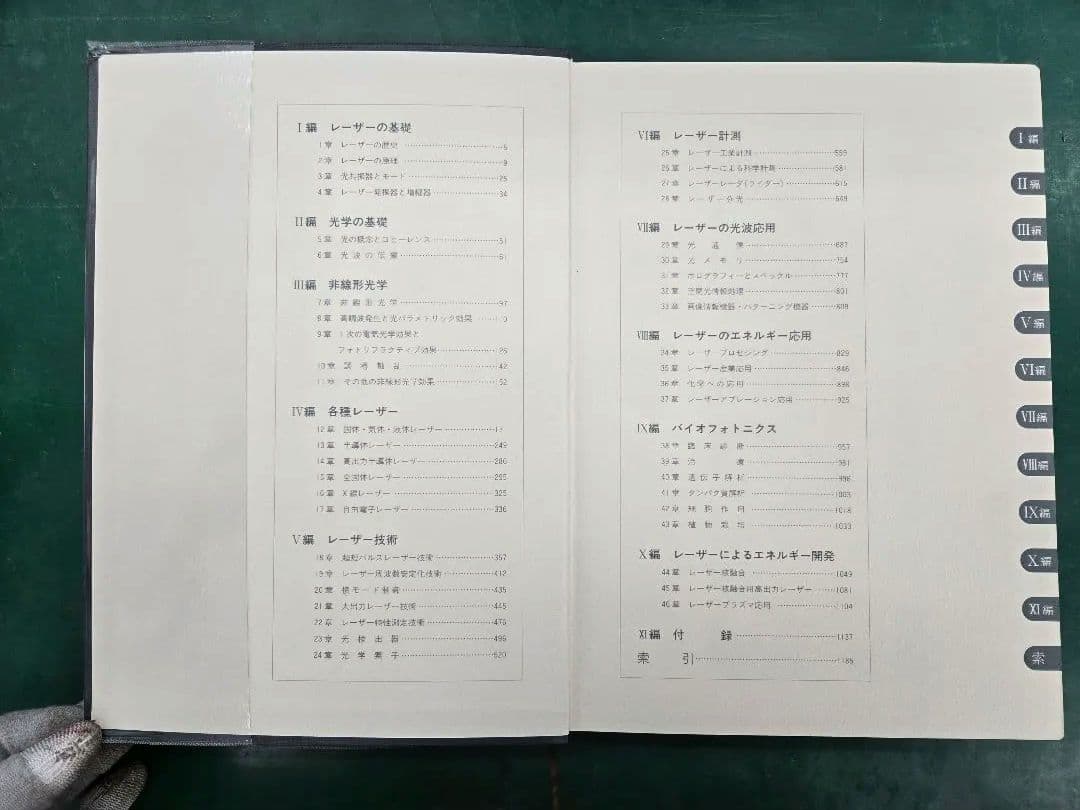 I編 レーザーの基礎
1章 レーザーの歴史 5
2章 レーザーの原理 9
3章 光共振器とモード 25
4章 レーザー発振器と増幅器 34
II編 光学の基礎
5章 光の概念とコヒーレンス 51
6章 光波の伝搬 61
III編 非線形光学
7章 非線形光学 97
8章 高調波発生と光パラメトリック効果
9章 1次の電気光学効果と
フォトリフラクティブ効果
10章 誘導散乱
11章 その他の非線形光学効果
IV編 各種レーザー
12章 固体・気体・液体レーザー
13章 半導体レーザー 249
14章 高出力半導体レーザー 286
15章 全固体レーザー 295
16章 X線レーザー 325
17章 自由電子レーザー 336
V編 レーザー技術
18章 超短パルスレーザー技術 357
19章 レーザー周波数安定化技術 412
20章 横モード制御 435
21章 大出力レーザー技術 445
22章 レーザー特性測定技術 476
23章 光検出器 496
24章 光学素子 520
VI編 レーザー計測
25章 レーザー工業計測 559
26章 レーザーによる科学計測 581
27章 レーザーレーダ(ライダー) 615
28章 レーザー分光 649
VII編 レーザーの光波応用
29章 光通信 687
30章 光メモリ 754
31章 ホログラフィーとスペックル 777
32章 空間光情報処理 801
33章 画像情報機器・パターニング機器 808
VIII編 レーザーのエネルギー応用
34章 レーザープロセシング 829
35章 レーザー産業応用 846
36章 化学への応用 898
37章 レーザーアブレーション応用 925
IX編 バイオフォトニクス
38章 臨床診断 957
39章 治療 981
40章 遺伝子解析 996
41章 タンパク質解析 1003
42章 細胞作用 1018
43章 植物栽培 1033
X編 レーザーによるエネルギー開発
44章 レーザー核融合 1049
45章 レーザー核融合用高出力レーザー 1081
46章 レーザープラズマ応用 1104
XI編 付録 1137
索引 1185
I編
II編
III編
IV編
V編
VI編
VII編
VIII編
IX編
X編
XI編
索